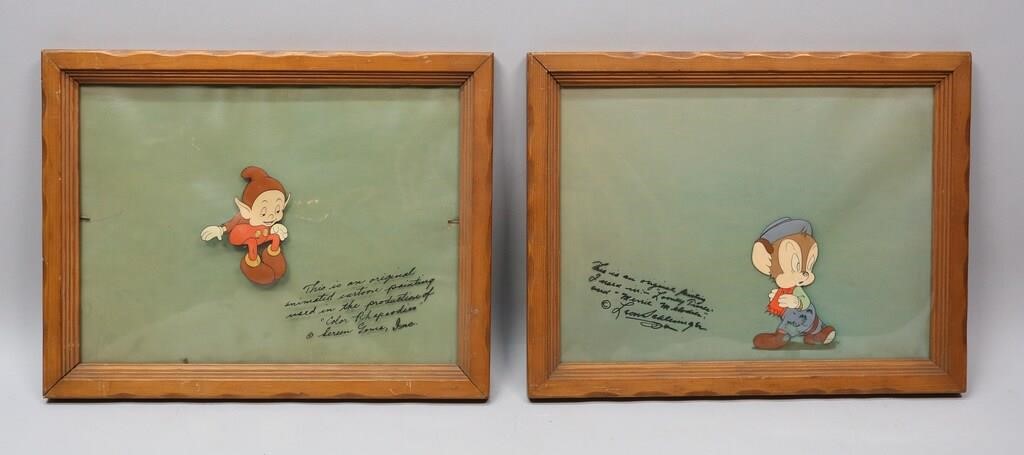 This is an original
animated cartoon painting
used in the production of
"Color Rhapsodies"
© Screen Gems, Inc.
This is an original painting
used in "Looney Tunes"
and "Merrie Melodies".
© Leon Schlesinger